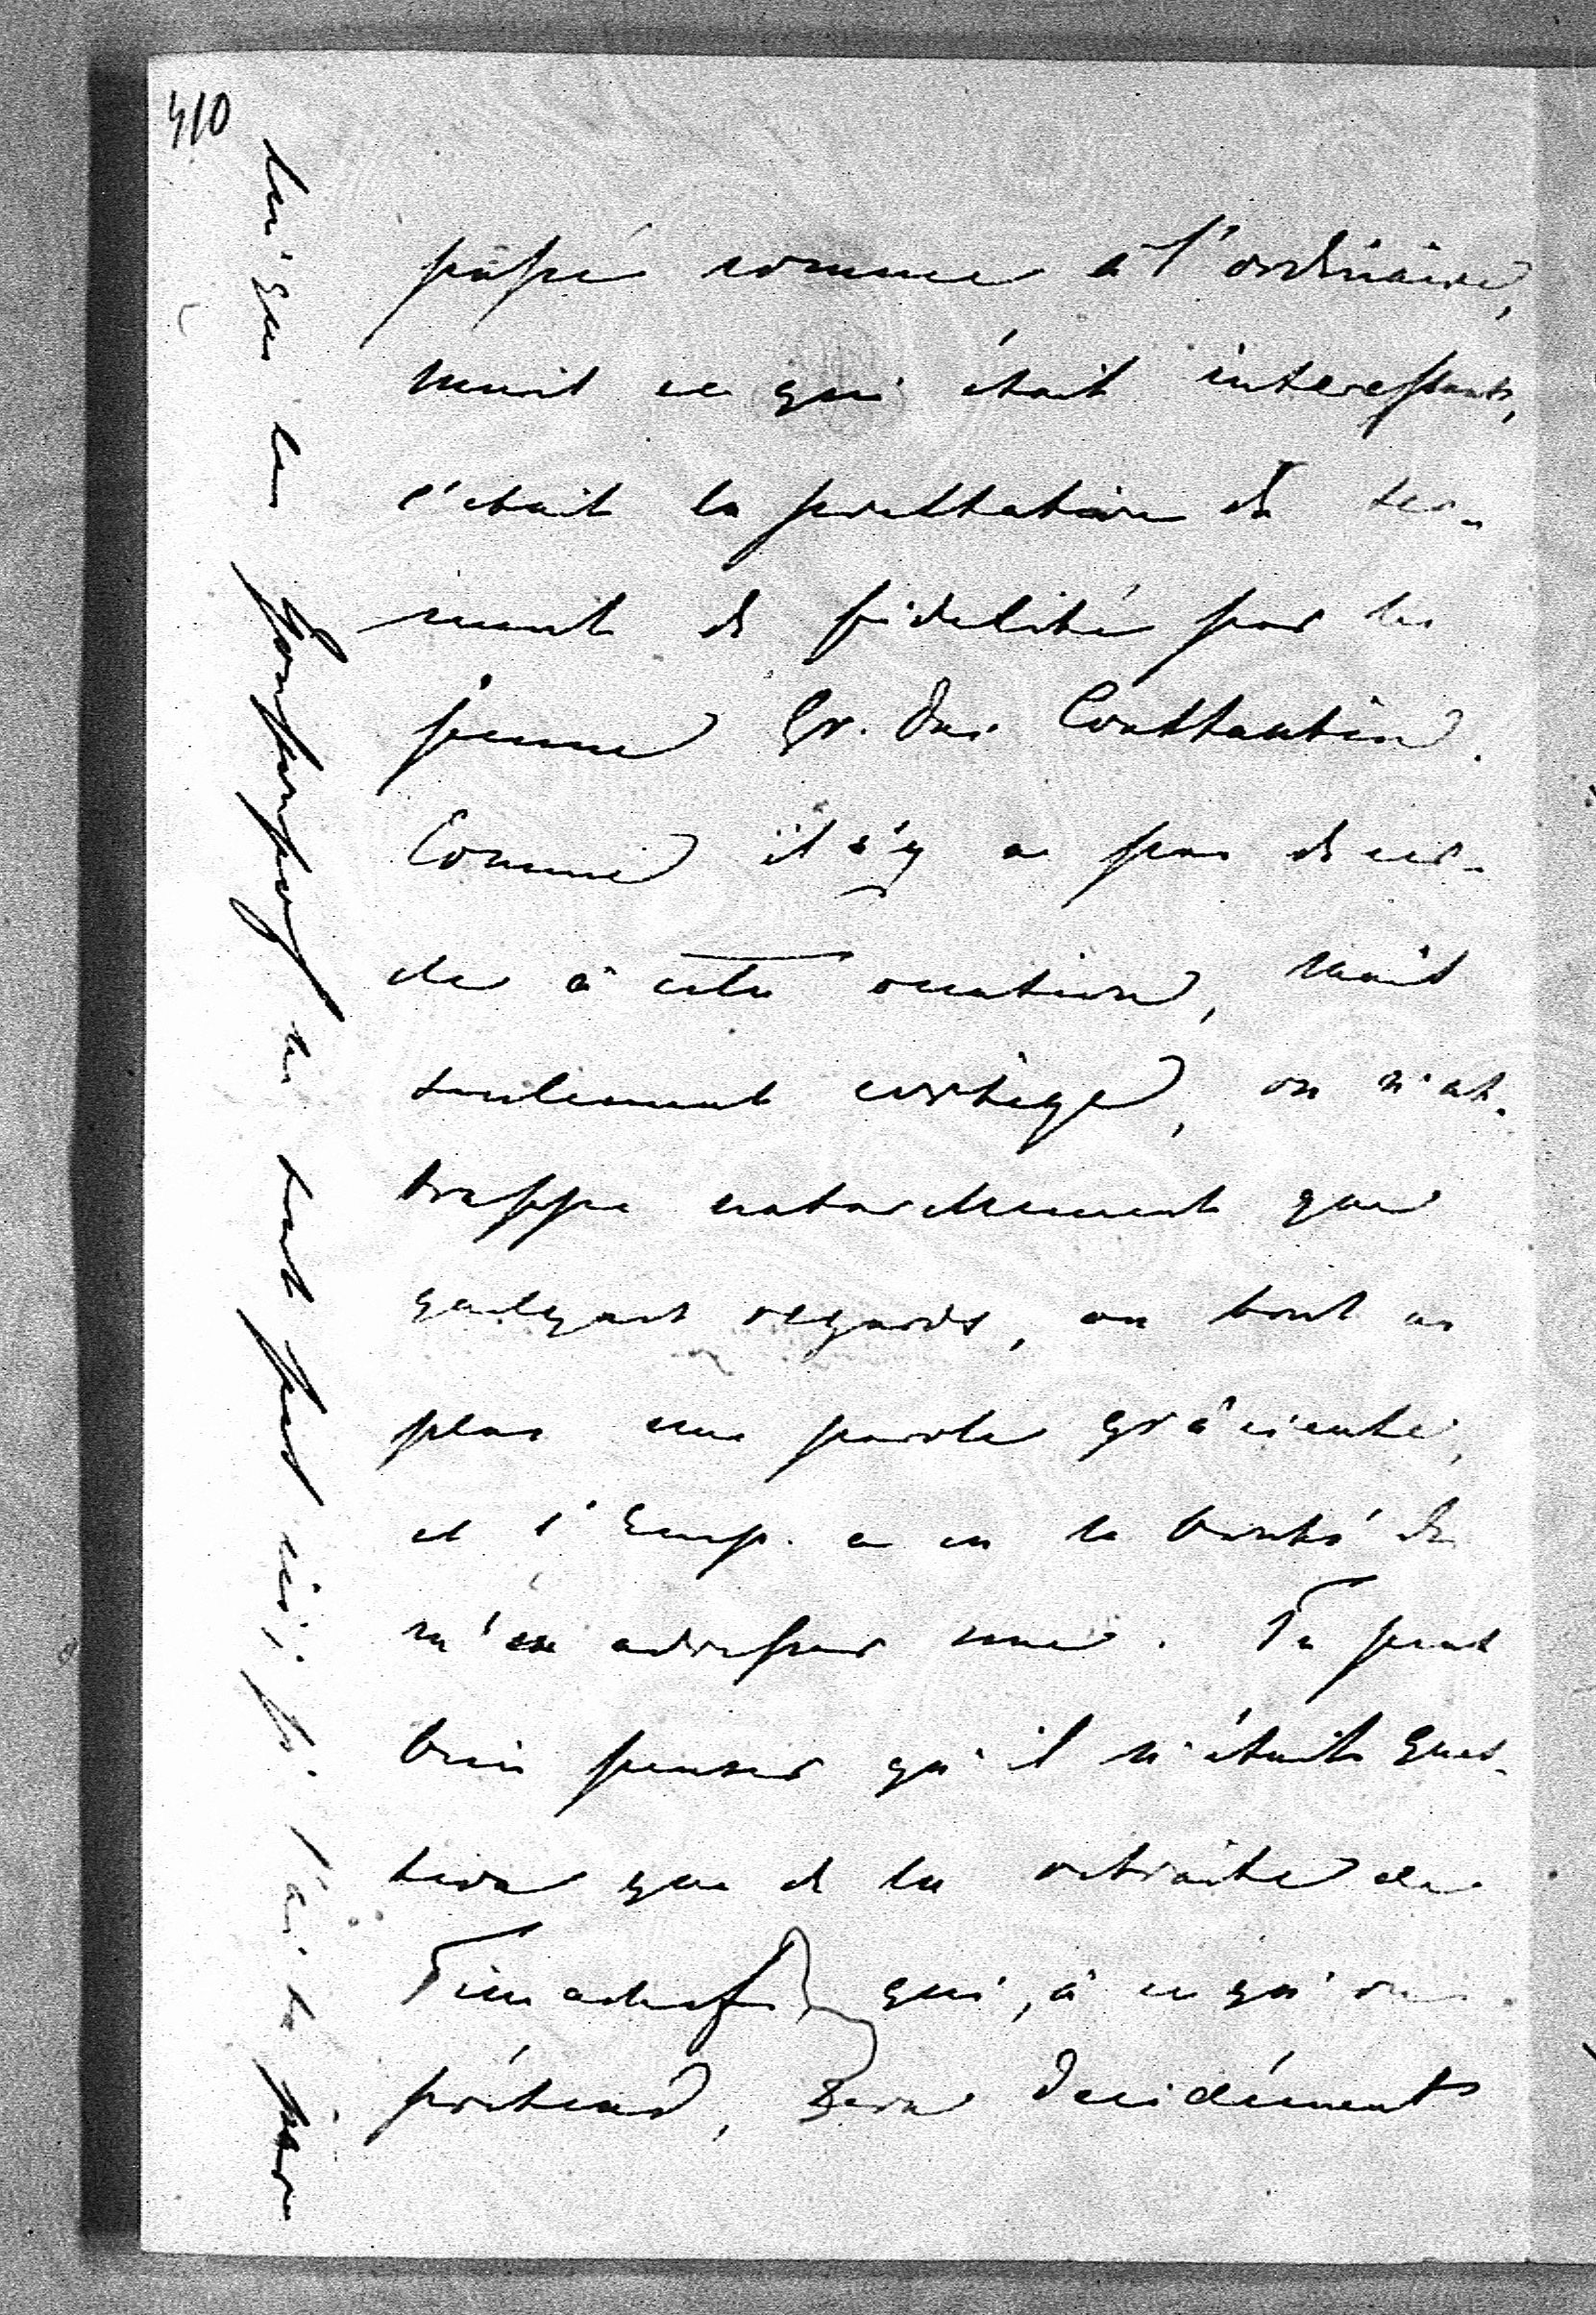 410
passé comme à l'ordinaire,
mais ce qui était interessant,
c'était la prestation du ser-
ment de fidelité par le
jeune Gr. Duc Constantin.
Comme il n'y a pas de cer-
cle à cette occasion, mais
seulement cortège, on n'at-
trappe naturellement que
quelques regards, ou tout au
plus une parole grâcieuse,
et l'Emp. a eu la bonté de
m'en adresser une. Tu peux
bien penser qu'il n'était ques-
tion que de la retraite de
Timacheff qui, à ce qu'on
prétend, sera decidément
que les ne sont pas ici; je l'ai